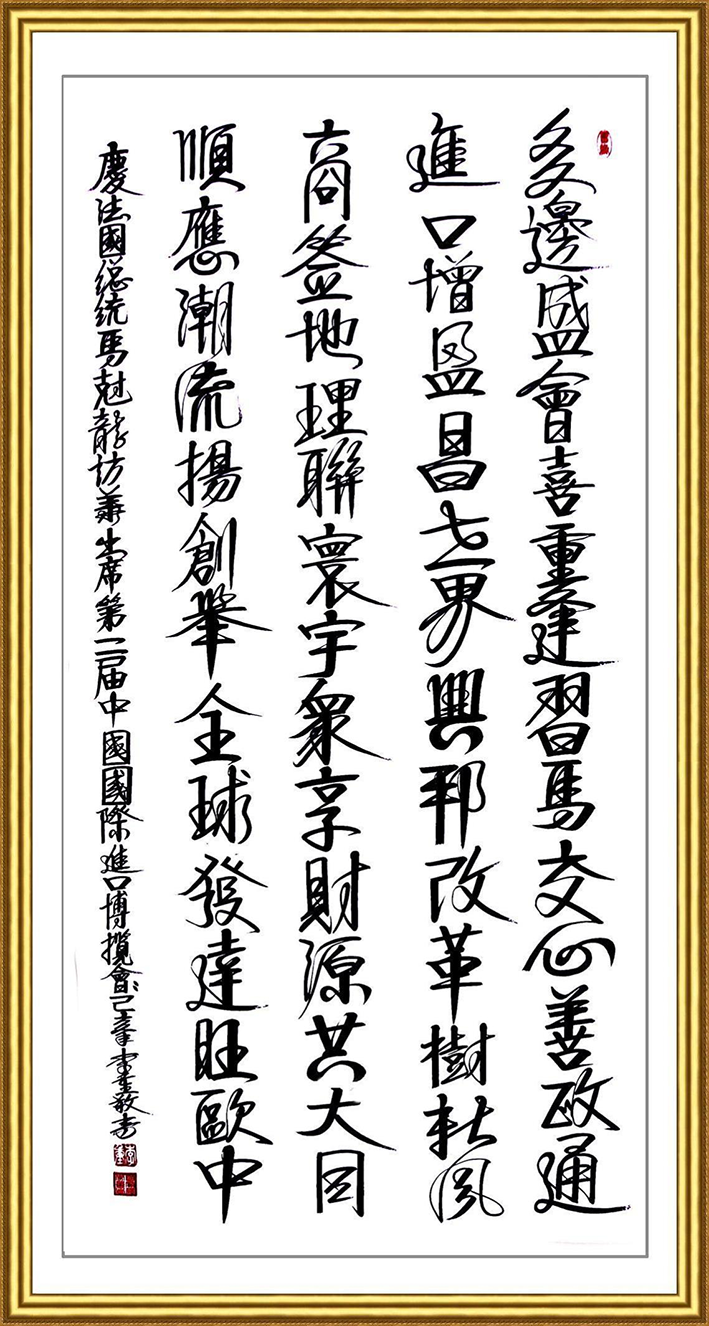 多邊盛會喜重逢習馬交心善政通
進口增盈昌世界興邦改革樹風
商签地理聯寰宇衆享財源共大同
順應潮流揚創舉全球發達旺歐中
慶法國総統馬尅龍訪華出席第二届中國國際進口博攬會己亥李重教书